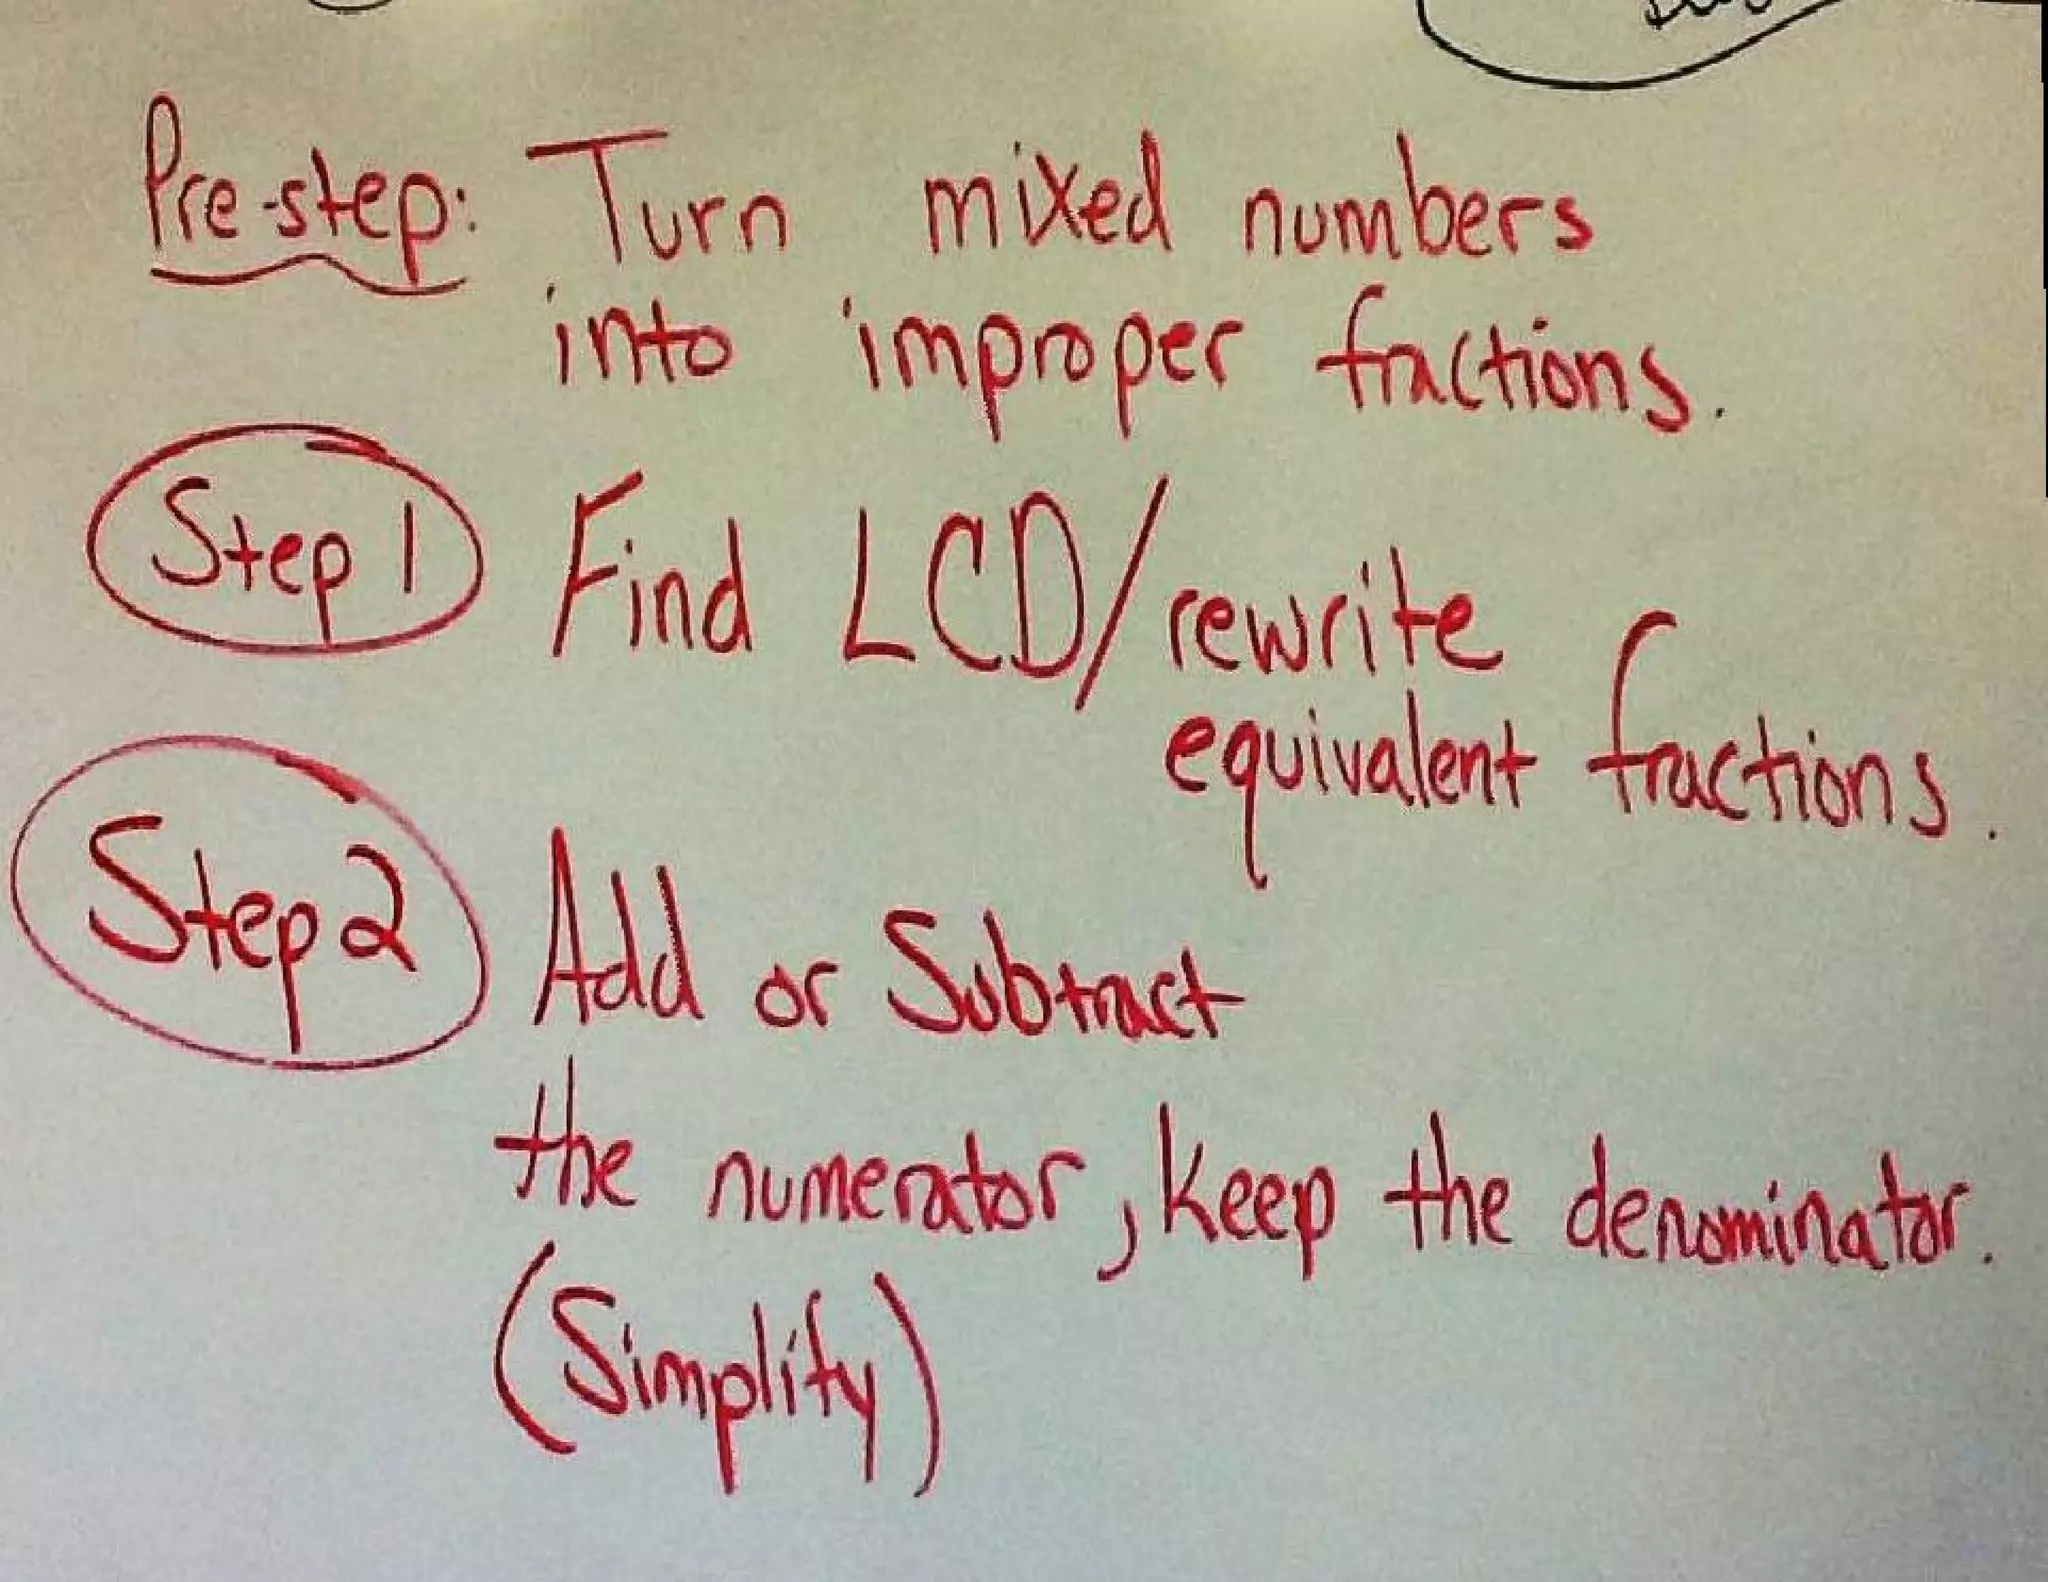 Pre-step: Turn mixed numbers
into improper fractions.
Step 1 Find LCD/rewrite
equivalent fractions.
Step 2 Add or Subtract
the numerator, keep the denominator.
(Simplify)